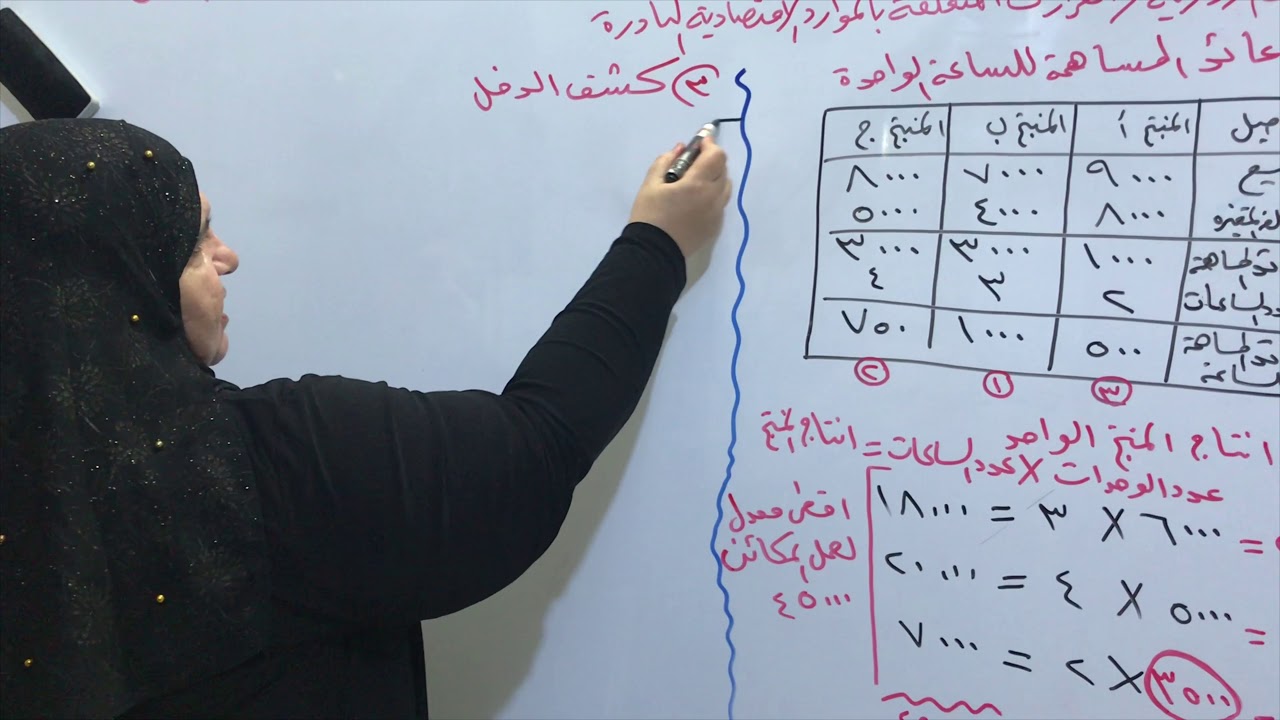 المتعلقة بالموارد الاقتصادية النادرة
عائد المساهمة للساعة الواحدة
المنتج أ المنتج ب المنتج ج
بيع ٩٠٠٠ ٧٠٠٠ ٨٠٠٠
٨٠٠٠ ٤٠٠٠ ٥٠٠٠
المساهمة ١٠٠٠ ٣٠٠٠ ٣٠٠٠
الساعات ٢ ٣ ٤
المساهمة ٥٠٠ ١٠٠٠ ٧٥٠
ساعة
٣ ١ ٢
انتاج المنتج الواحد
عدد الوحدات X عدد الساعات = انتاج
= ٦٠٠٠ X ٣ = ١٨٠٠٠
= ٥٠٠٠ X ٤ = ٢٠٠٠٠
= ٣٥٠٠ X ٢ = ٧٠٠٠
اقصى معدل
لعمل المكائن
٤٥٠٠٠
٣ كشف الدخل